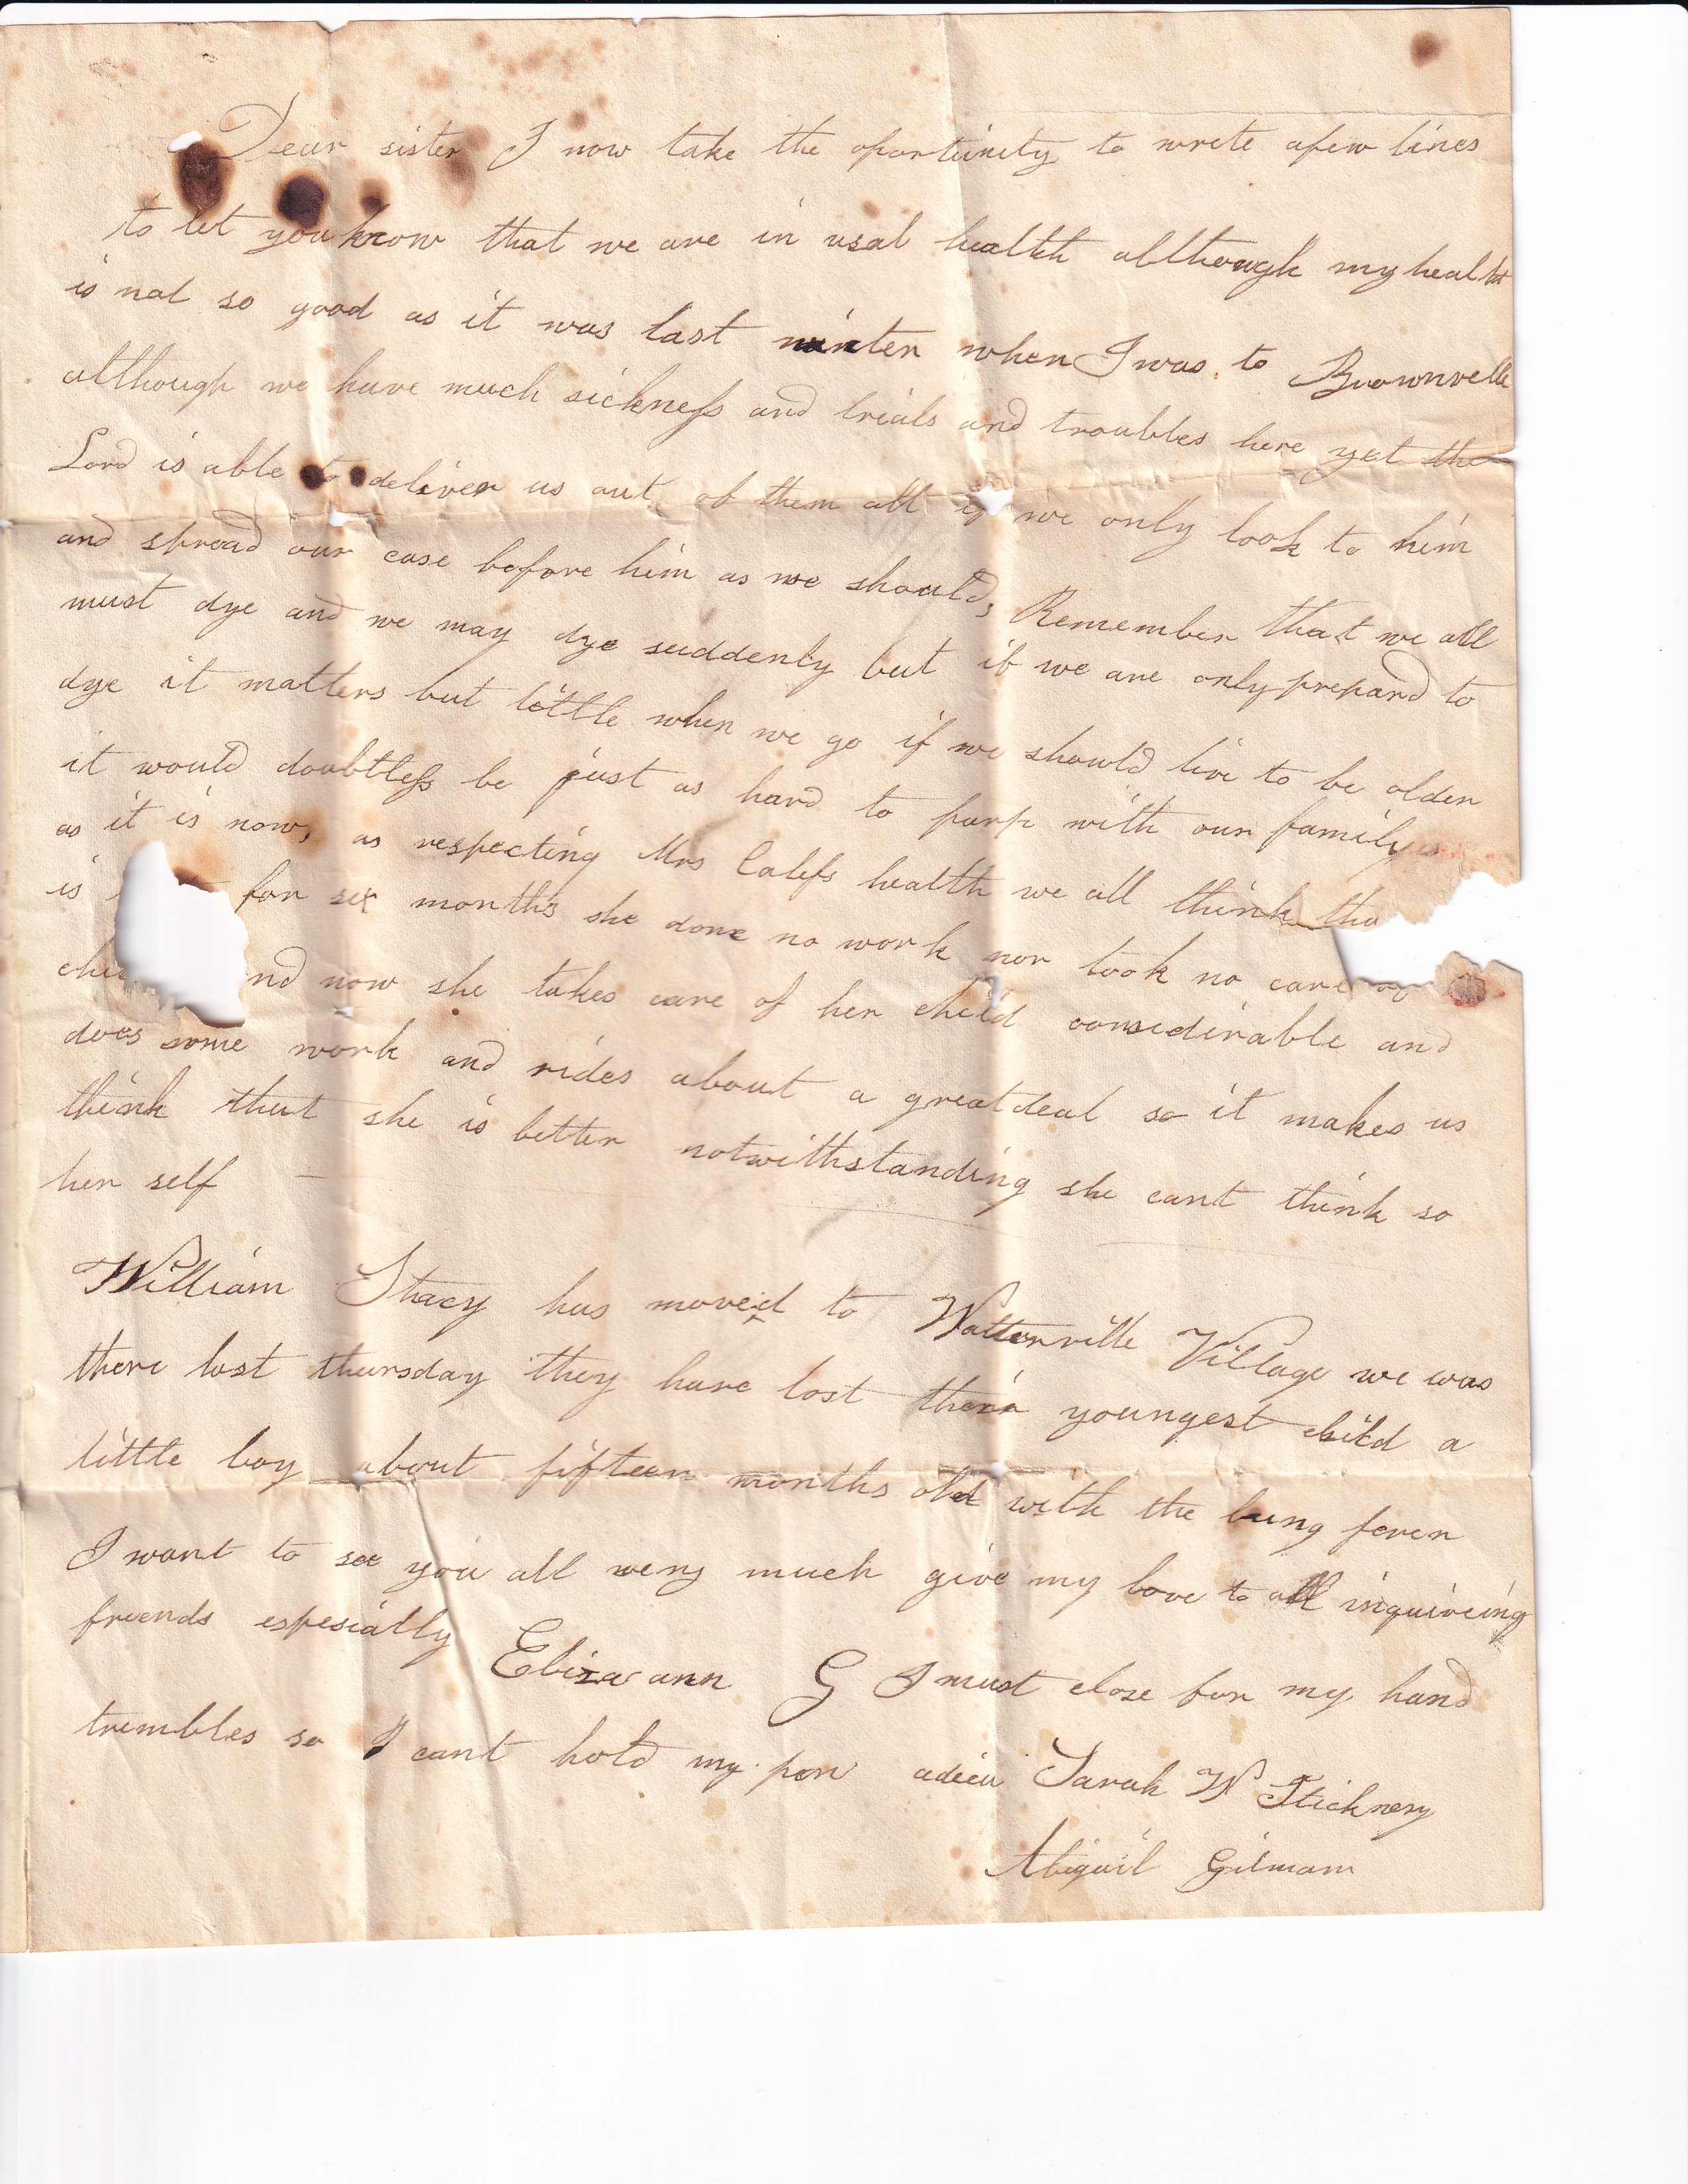 Dear sister I now take the oportunity to wrete afew lines
to let you know that we are in usal health allthough my health
is not so good as it was last winter when I was to Brownvelle
although we have much sickness and trials and troubles here yet the
Lord is able to deliver us out of them all if we only look to him
and spread our case before him as we should, Remember that we all
must dye and we may dye suddenly but if we are only prepard to
dye it matters but little when we go if we should live to be older
it would doubtless be just as hard to part with our family
as it is now, as respecting Mrs Calefs health we all think
is for six months she done no work nor took no care of
now she takes care of her child considirable and
does some work and rides about a great deal so it makes us
think that she is better notwithstanding she cant think so
her self
William Stacy has moved to Watterville Village we was
there last thursday they have lost their youngest child a
little boy about fifteen months old with the lung fever
I want to see you all very much give my love to all inquireing
friends espesially Eliza ann G I must close for my hand
trembles so I cant hold my pen adieu Sarah W Stickney
Abigail Gilman